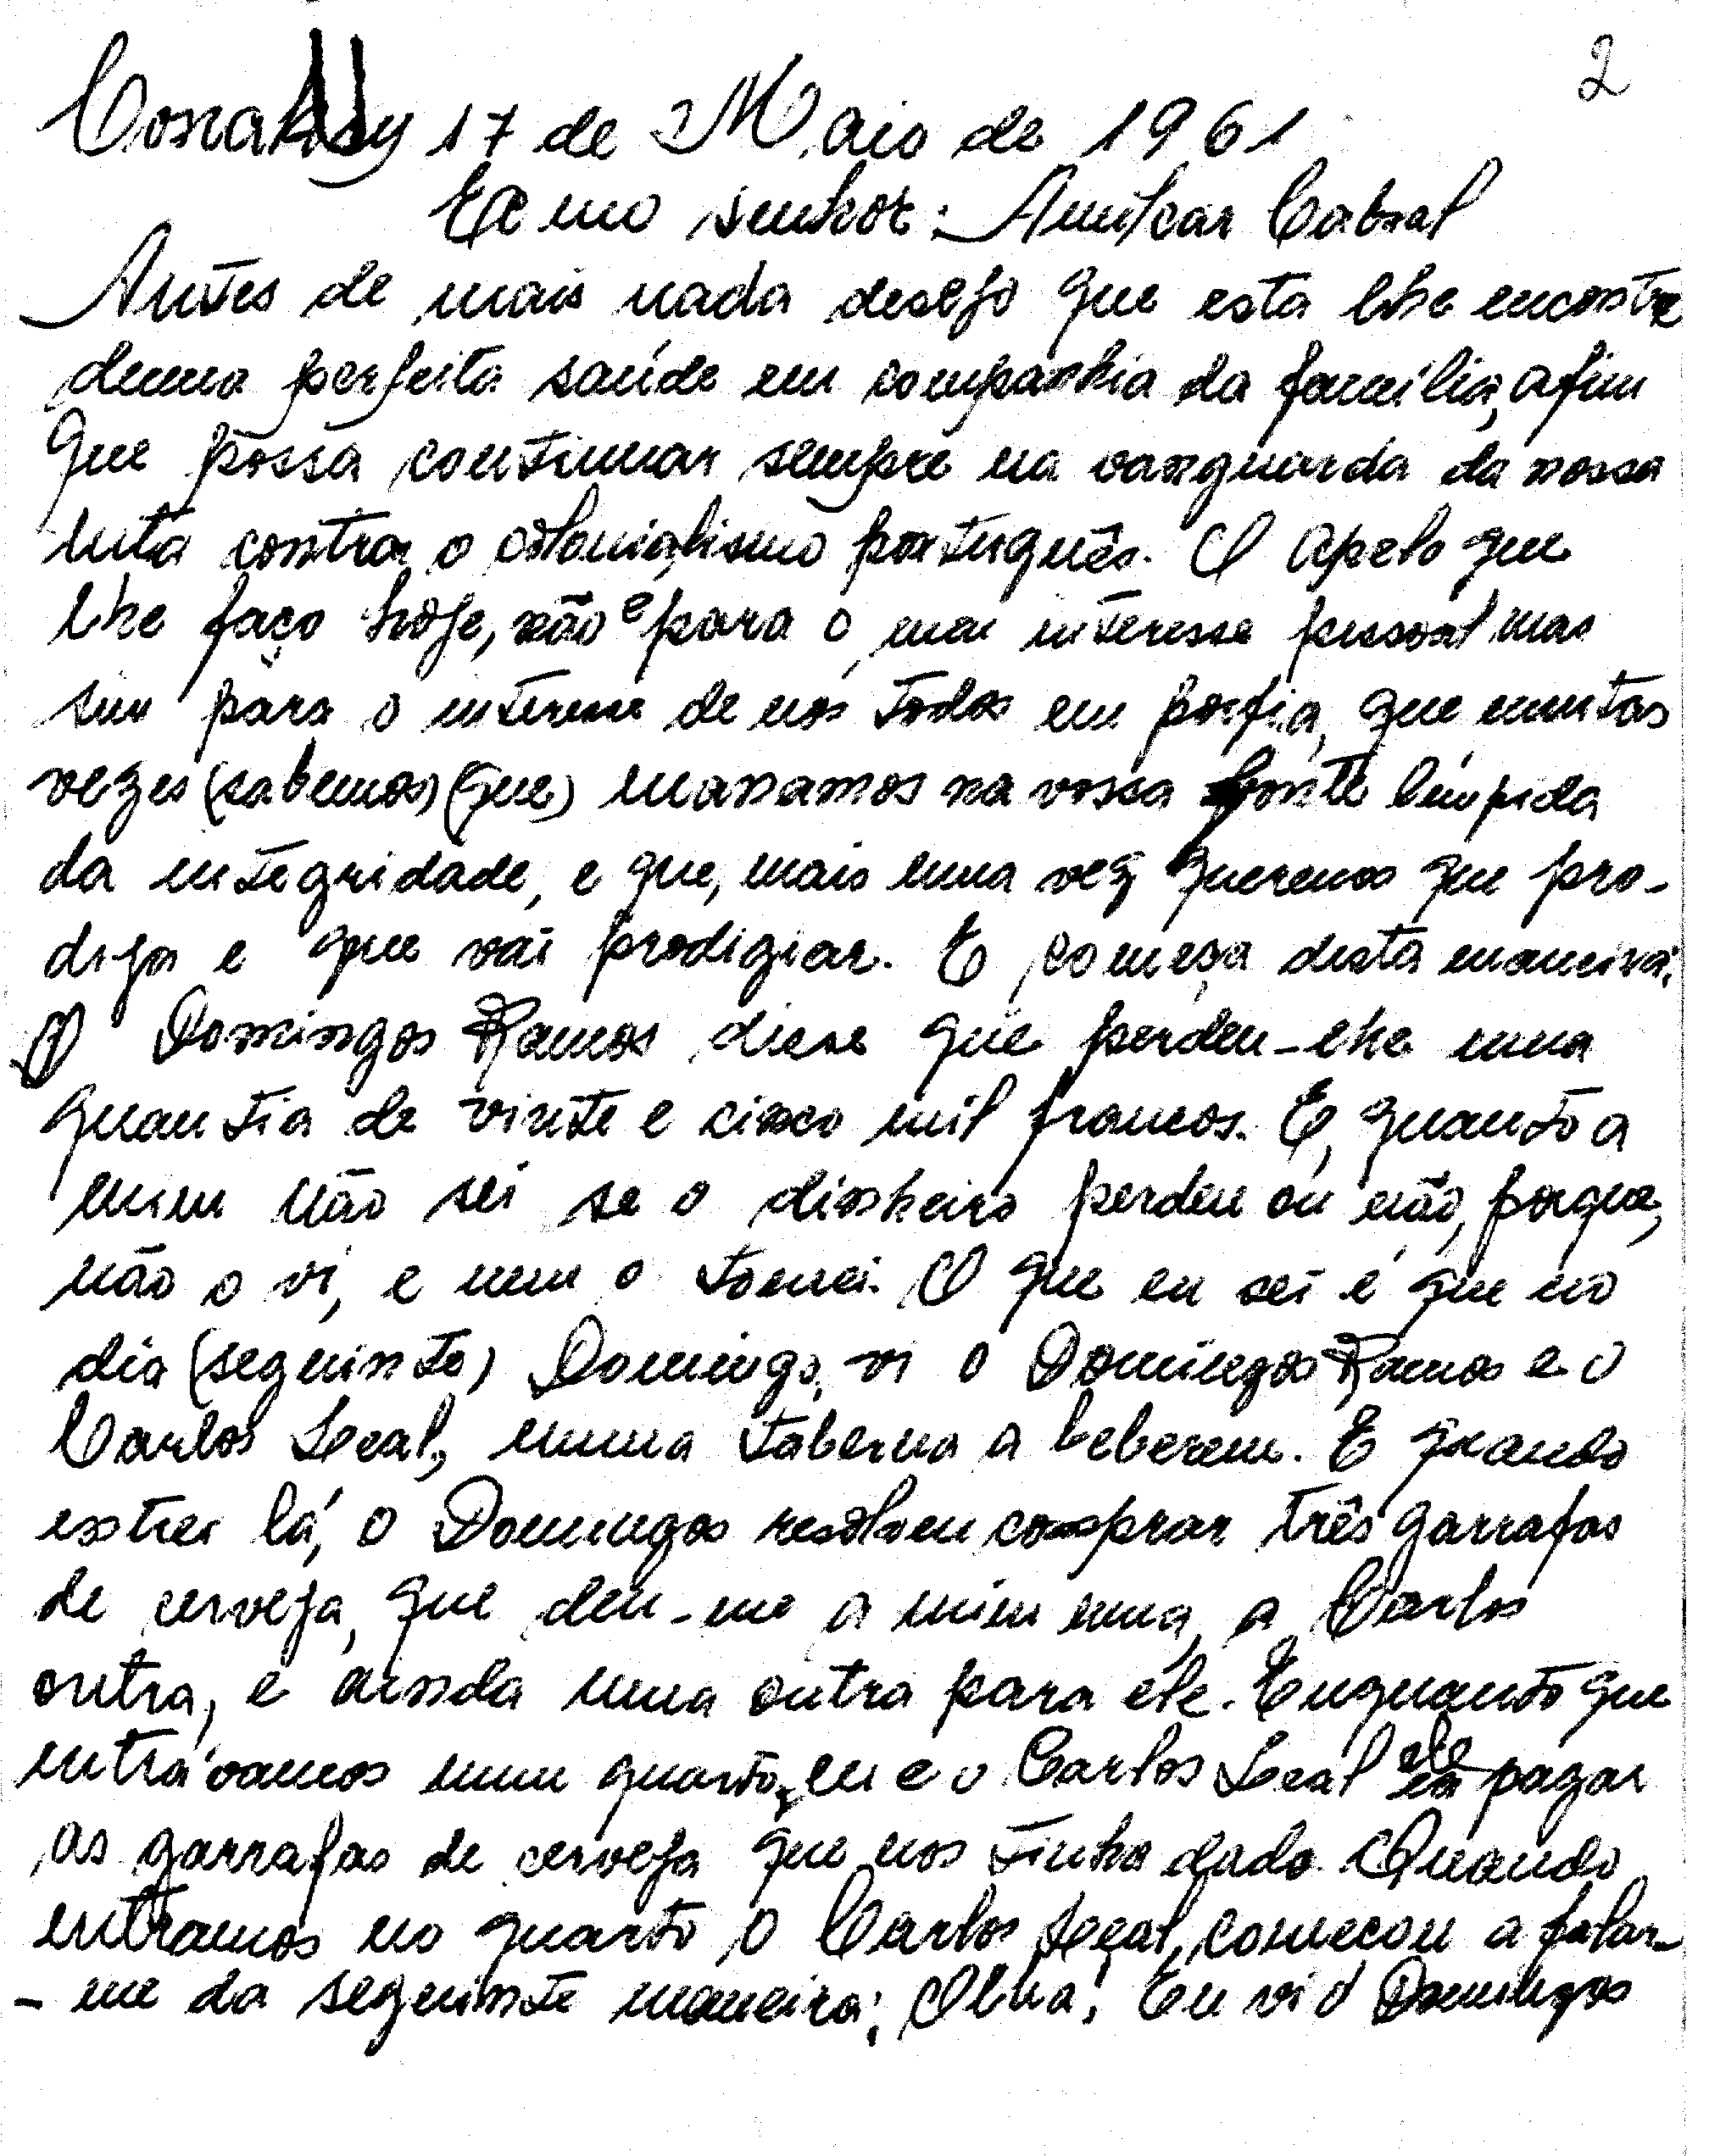 2
Conakry 17 de Maio de 1961
Exmo senhor: Amílcar Cabral
Antes de mais nada desejo que esta lhe encontre
duma perfeita saúde em companhia da família, afim
que possa continuar sempre na vanguarda da nossa
luta contra o colonialismo português. O apelo que
lhe faço hoje, não é para o meu interesse pessoal mas
sim para o interesse de nós todos em porfia, que muitas
vezes (sabemos) (que) manamos na vossa fonte límpida
da integridade, e que, mais uma vez queremos que pro-
diga e que vai prodigiar. E começa desta maneira:
O Domingos Ramos disse que perdeu-lhe uma
quantia de vinte e cinco mil francos. E, quanto a
mim não sei se o dinheiro perdeu ou não, porque,
não o vi, e nem o tomei. O que eu sei é que no
dia (seguinte) Domingo, vi o Domingos Ramos e o
Carlos Leal, numa taberna a beberem. E quando
entrei lá, o Domingos resolveu comprar três garrafas
de cerveja, que deu-me a mim uma, a Carlos
outra, e ainda uma outra para ele. Enquanto que
entrávamos num quarto, eu e o Carlos Leal ele ia pagar
as garrafas de cerveja que nos tinha dado. Quando
entramos no quarto o Carlos Leal, começou a falar-
-me da seguinte maneira; Olha! Eu vi o Domingos